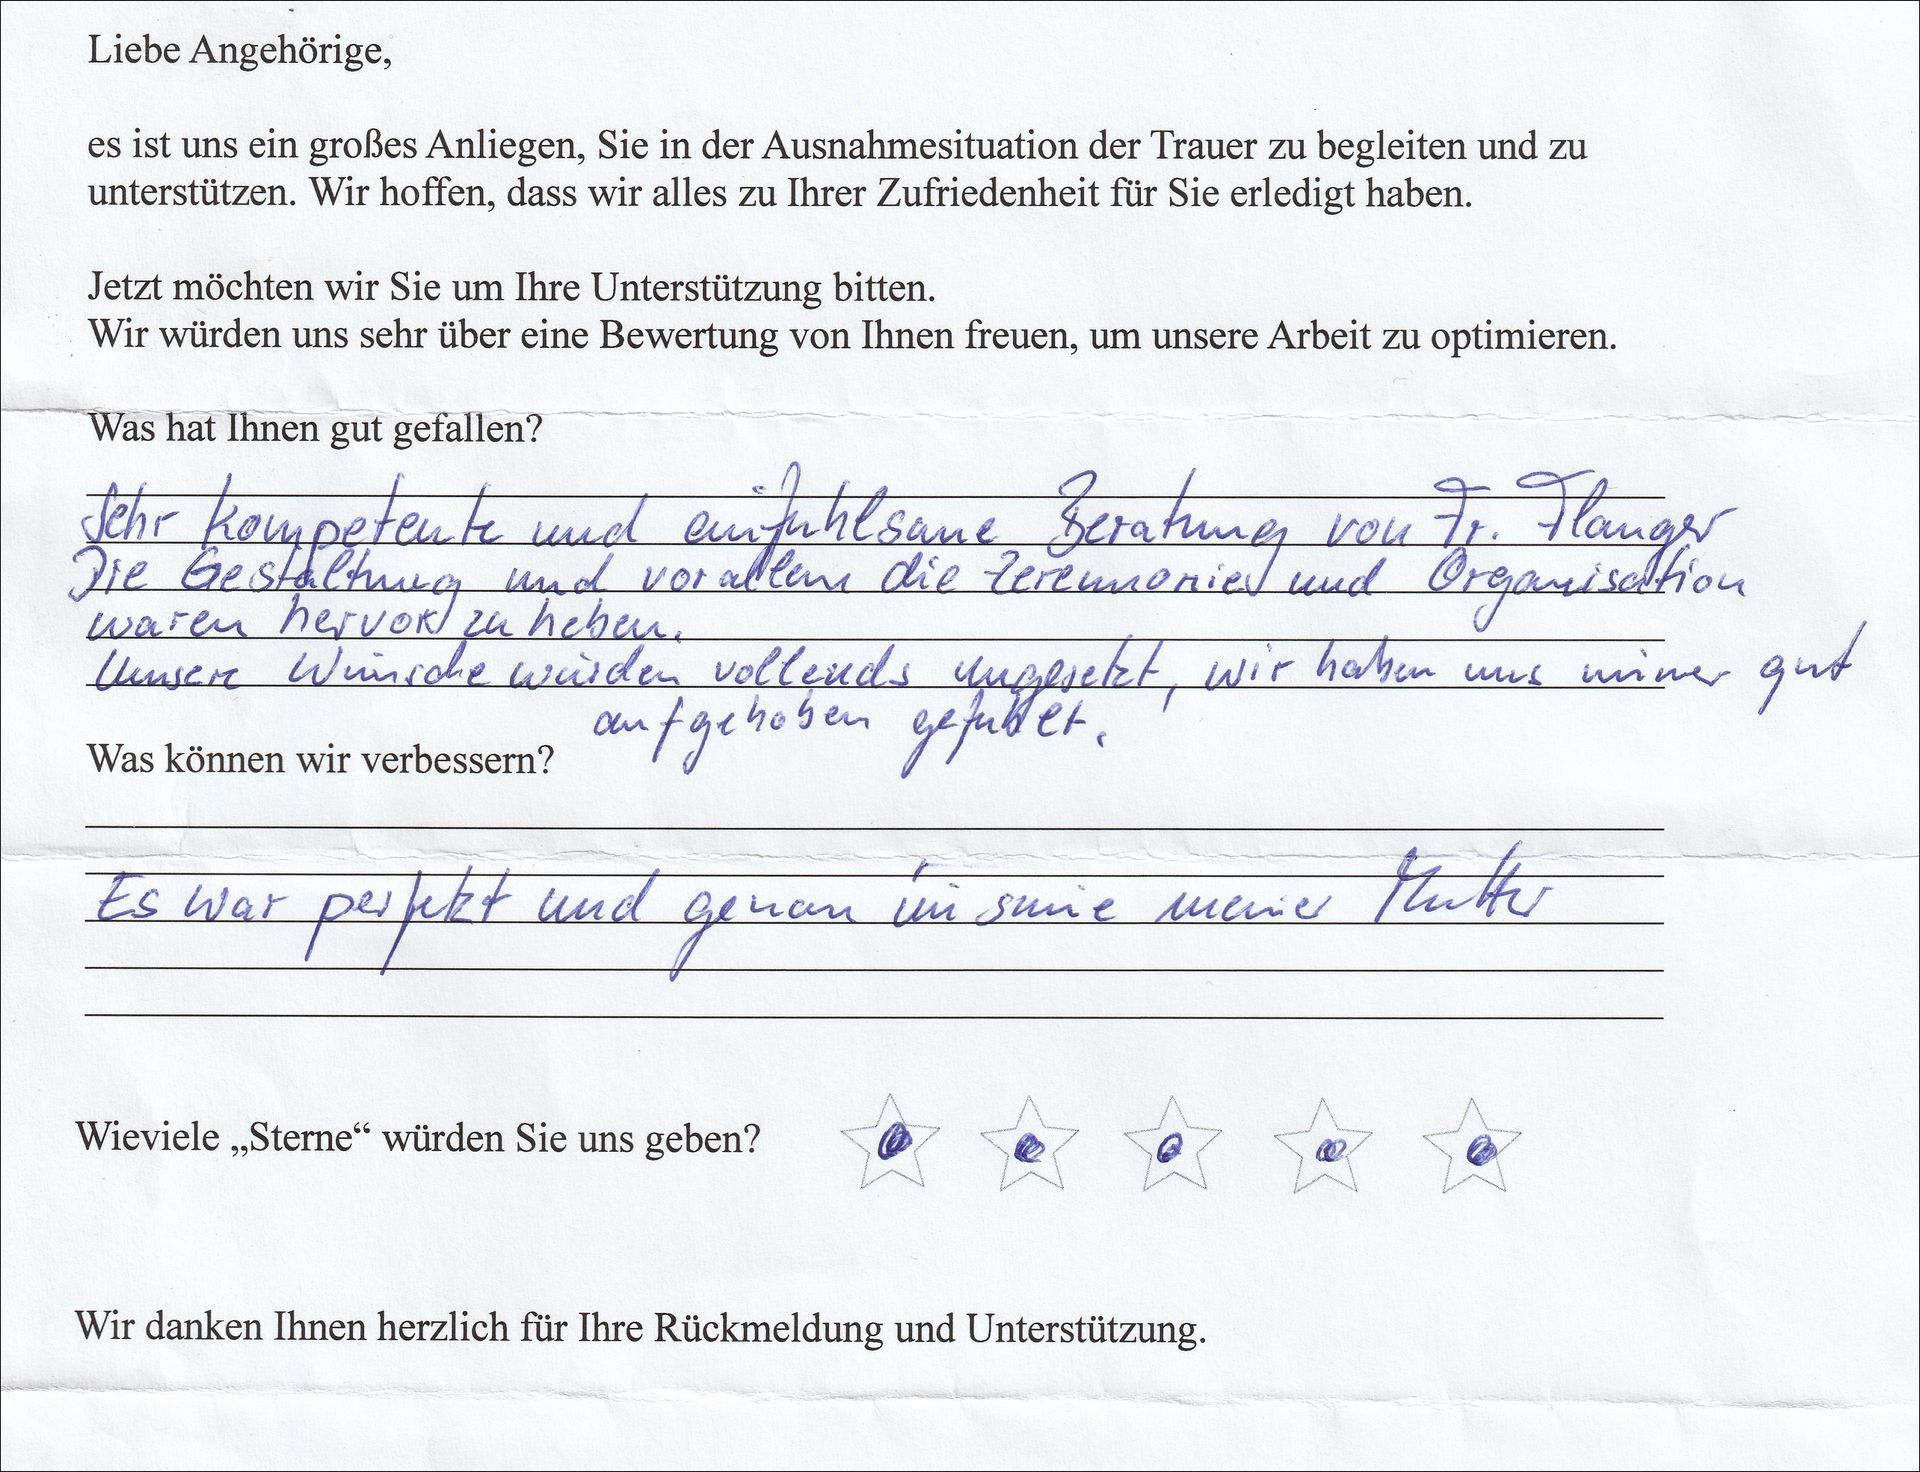 Liebe Angehörige,
es ist uns ein großes Anliegen, Sie in der Ausnahmesituation der Trauer zu begleiten und zu
unterstützen. Wir hoffen, dass wir alles zu Ihrer Zufriedenheit für Sie erledigt haben.
Jetzt möchten wir Sie um Ihre Unterstützung bitten.
Wir würden uns sehr über eine Bewertung von Ihnen freuen, um unsere Arbeit zu optimieren.
Was hat Ihnen gut gefallen?
Sehr kompetente und einfühlsame Beratung von Fr. Flanger
Die Gestaltung und vorallem die Zeremonie und Organisation
waren hervor zu heben.
Unsere Wünsche wurden vollends umgesetzt, wir haben uns immer gut
aufgehoben gefühlt.
Was können wir verbessern?
Es war perfekt und genau im sinne meiner Mutter
Wieviele „Sterne“ würden Sie uns geben?
Wir danken Ihnen herzlich für Ihre Rückmeldung und Unterstützung.